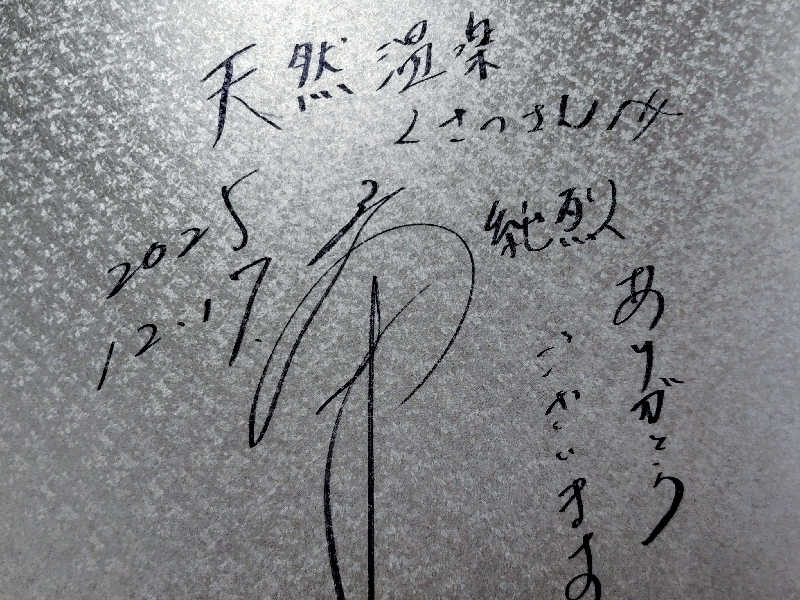 天然温泉
くさっさんげ
純烈
ありがとう
ございます
2025
12.17.